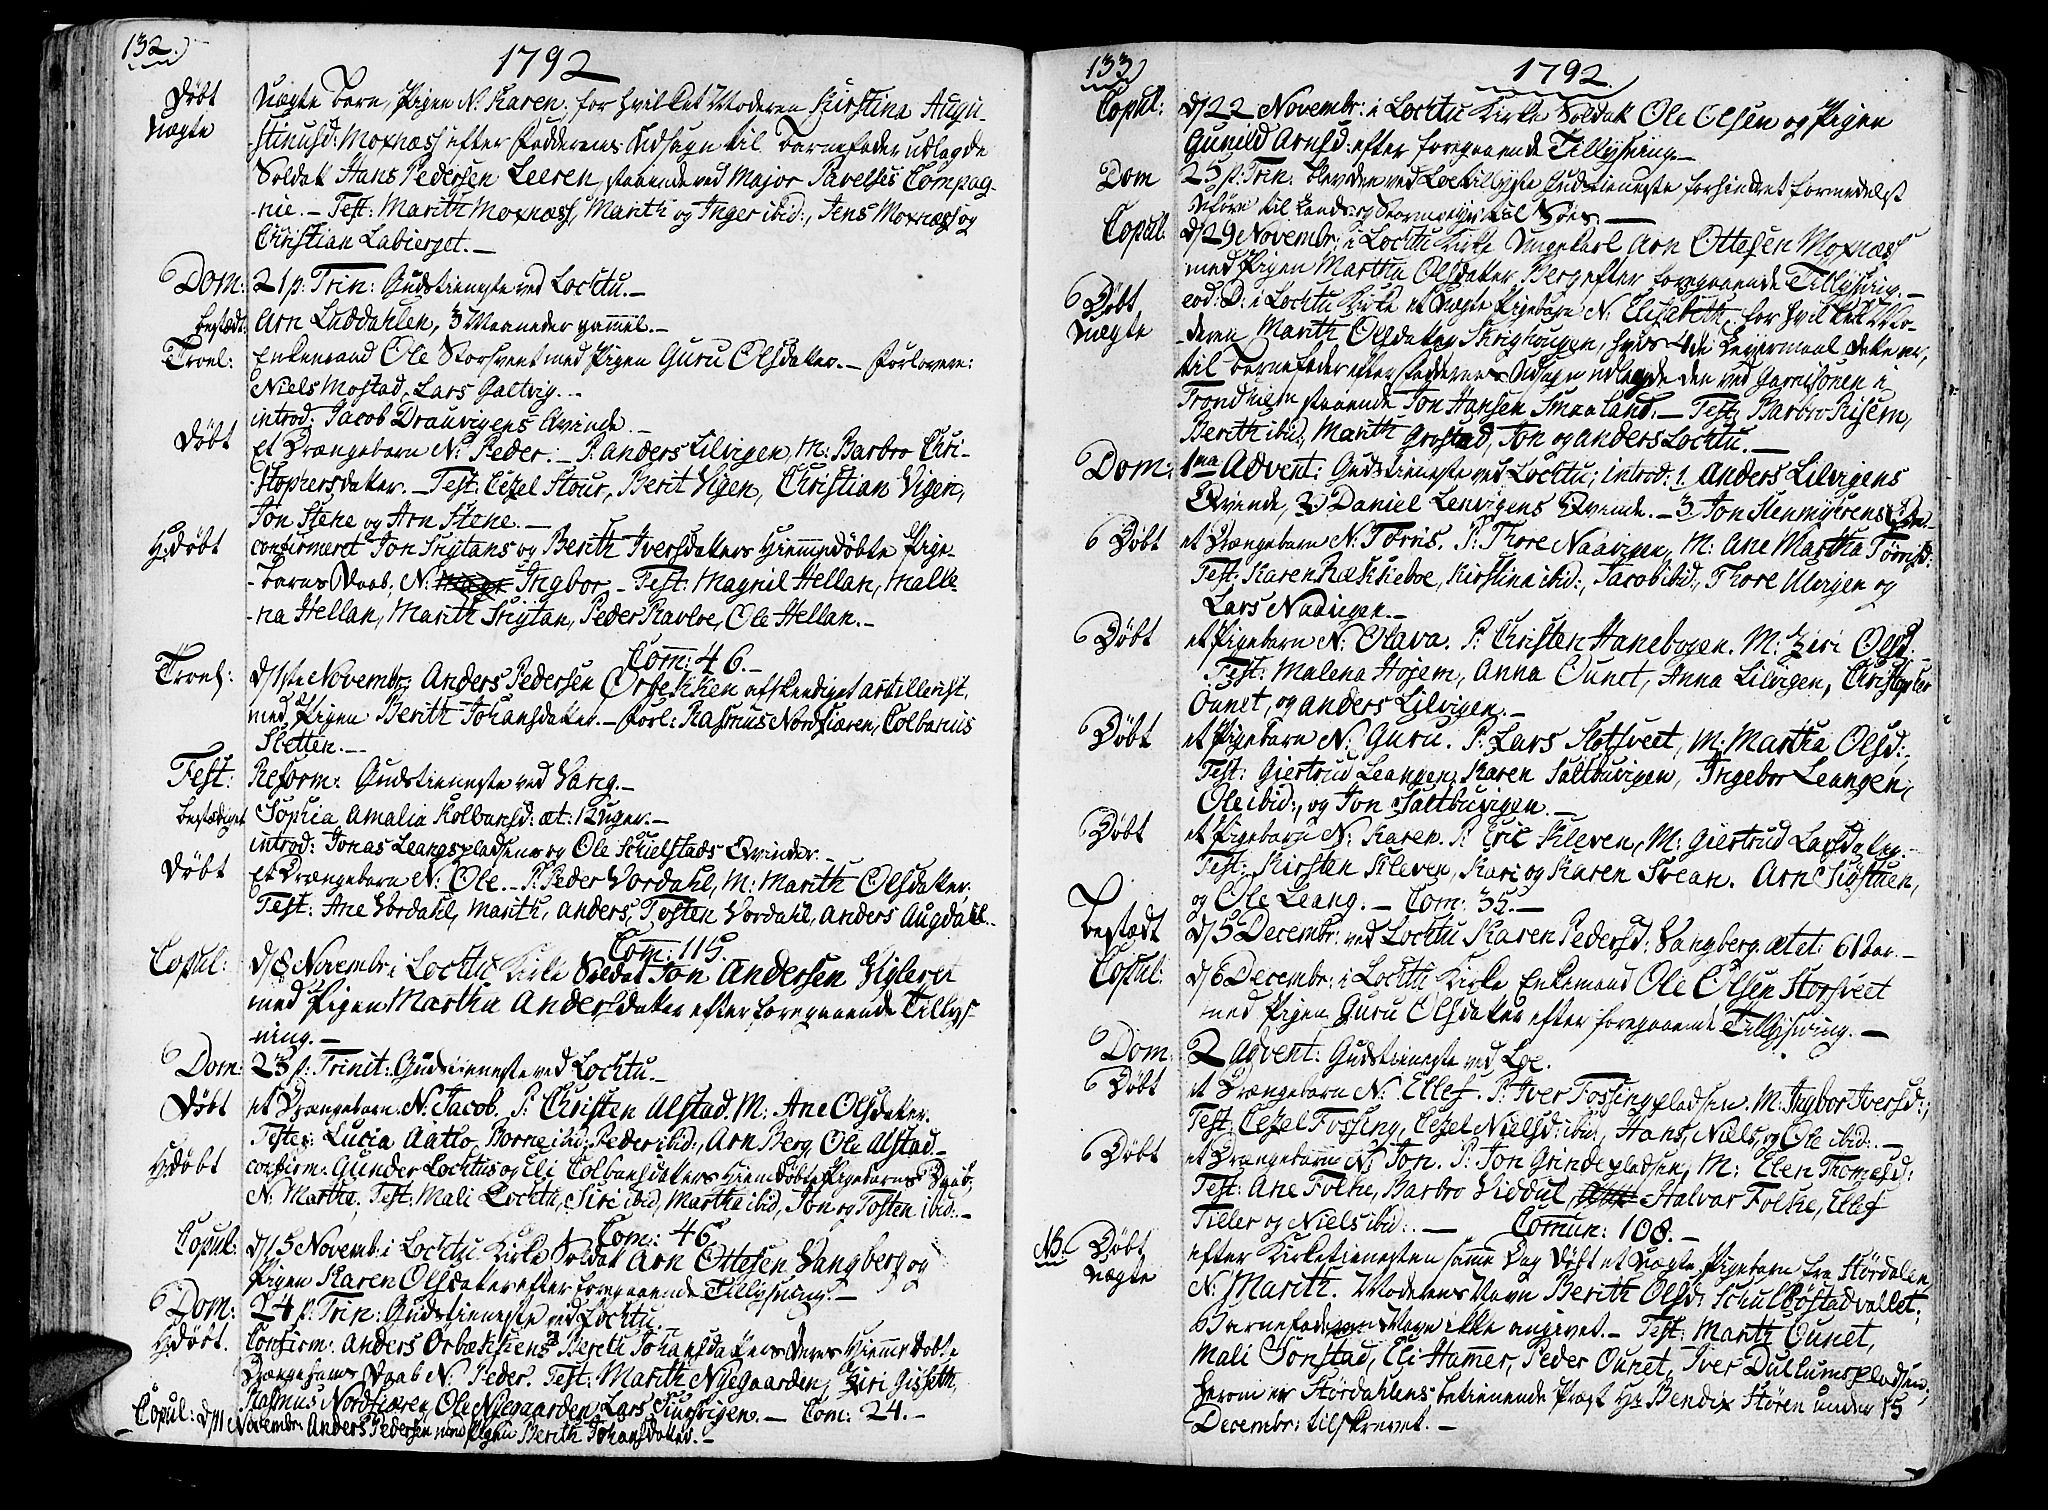 132.
1792
Døbt uægte Barn, Pigen N. Karen, for hvilket Moderen Kirstina Augu-
stinusd: Moxness efter Fadderens Udsagn til Barnefader udlagde
Soldat Hans Pedersen Leeren, staaende ved Major Pavelses Compag-
-nie. – Test: Marith Moxness, Marith og Inger ibid:, Jens Moxness og
Christian Labierget. –
Dom: 21 p: Trin: Gudstieneste ved Lochtu. –
begr: Arn Luddahlen, 3 Maaneder gammel. –
Trol: Enkemand Ole Storsveet med Pigen Guru Olsdatter. – Forlovere:
Niels Mostad, Lars Galtvig. –
introd: Jacob Drauvigens Qvinde. –
Døbt et Drængebarn N: Peder. – P: Anders Lilvigen, M: Barbro Chri-
-stophersdatter. – Test: Cezel Stour, Berit Vigen, Christian Vigen,
Jon Stene og Arn Stene. –
H:døbt confirmeret Jon Frigtans og Berith Iversdatters Hiemmedøbte Pige-
-barns Daab, N: Ingbor – Test: Magnil Hellan, Malle-
-na Hellan, Marith Frigtan, Peder Ravloe, Ole Hellan. –
Com: 46. –
Trol: d/1ste Novembr: Anders Pedersen Orbekken afskediget artillerist,
med Pigen Berith Johansdatter. – Forl: Rasmus Nordsiæren, Colbanus
Sletten. –
Fest: Reform: Gudstieneste ved Vang. –
begr: Sophia Amalia Kolbansd: æt: 12 Uger. –
introd: Jonas Leangspladsens og Ole Schielstads Qvinder. –
Døbt et Drængebarn N: Ole. – P: Peder Vordahl, M: Marith Olsdatter.
Test: Ane Vordahl, Marith, Anders, Tosten Vordahl, Anders Augdahl. –
Com: 115.
Copul: d/8 Novembr: i Lochtu Kirke Soldat Jon Andersen Vigleret
med Pigen Martha Andersdatter efter foregaaende Tillys-
ning. –
Dom: 23 p: Trinit: Gudstieneste ved Lochtu. –
Døbt et Drængebarn N: Jacob. P: Christen Alstad. M: Ane Olsdatter.
Testes: Lucia Aatlo, Borne ibid: Peder ibid:, Arn Berg, Ole Alstad. –
H:døbt confirm: Gunder Lochtus og Eli Colbansdatters Hiemdøbte Pigebarns Daab,
N: Martha. Test: Mali Lochtu, Siri ibid, Martha ibid, Jon og Tosten ibid: –
Com: 46.
Copul: d/15 Novemb: i Lochtu Kirke Soldat Arn Ottesen Vangberg og
Pigen Karen Olsdatter efter foregaaende Tillysning. –
Dom: 24 p: Trin: Gudstieneste ved Lochtu.
H:døbt. Confirm: Anders Orbekkens og Berith Johansdatters deres Hiemmedøbte
Drængebarns Daab N: Peder. Test: Marith Nyegaarden, Ziri Gisseth,
Rasmus Nordsiæren, Ole Nyegaarden, Lars . – Com: 24. –
Copul: d/ Novembr: Anders Pedersen med Pigen Berith Johansdatter. –
133.
1792.
Copul: d/22 Novembr: i Lochtu Kirke Soldat Ole Olsen og Pigen
Gunild Arnsd: efter foregaaende Tillysning. –
Dom 25 p: Trin: blev den ved Loe tillyste Gudstieneste forhindret formedelst
Uføre til Lands og Stormveir til Søes. –
Copul: d/29 Novembr: i Lochtu Kirke Ungekarl Arn Ottesen Moxness
med Pigen Martha Olsdatter Berg efter foregaaende Tillysning. –
Døbt uægte eod: D: i Lochtu Kirke et Uægte Pigebarn N: Elisabeth, for hvilket Mo-
deren Marith Olsdatter Skrighougen, hvis 4de Leyermaal dette er,
til Barnefader efter Faddernes Udsagn udlagde den ved Garnisonen i
Trondhiem staaende Jon Hansen Smaaland. – Test: Barbro Risem,
Berith ibid, Marith Grostad, Jon og Anders Lochtu. –
Dom: 1ma Advent: Gudstieneste ved Lochtu; introd: 1. Anders Lilvigens
Qvinde, 2) Daniel Lenvigens Qvinde. – 3 Jon Stenmyrens Qvin-
Døbt et Drængebarn N: Tørris. P: Thore Naavigen, M: Ane Martha Tørrisd:
Test: Karen Rækkeboe, Kirstina ibid:, Jacob ibid, Thore Ulvigen og
Lars Navigen. –
Døbt et Pigebarn N: Olava. P: Christen Hanebogen. M: Ziri Olsd. –
Test: Malena Hojem, Anna Ounet, Anna Lilvigen, Christopher
Ounet, og Anders Lilvigen. –
Døbt et Pigebarn N: Guru. P: Lars Slotsveet, M: Martha Olsd:,
Test: Giertrud Leangen, Karen Saltbuvigen, Ingebor Leangen,
Ole ibid:, og Jon Saltbuvigen. –
Døbt et Pigebarn N: Karen. P: Eric Kleven, M: Giertrud Larsdatter –
Test: Kirsten Kleven, Kari og Karen Svean. Arn Sigstuen,
og Ole Leang. – Com: 35. –
begr: d/5 Decembr: ved Lochtu Karen Pedersd: Vangberg ætet: 61 Aar. –
Copul: d/6 Decembr: i Lochtu Kirke Enkemand Ole Olsen Storsveet
med Pigen Guru Olsdatter efter foregaaende Tillysning. –
Dom: 2 Advent: Gudstieneste ved Loe.
Døbt et Drængebarn N: Ellef. P: Iver Fossingpladsen. M: Ingbor Iversd:;
Test: Cezel Fossing, Cezel Nielsd: ibid:, Hans, Niels, og Ole ibid: –
Døbt et Drængebarn N: Jon. P: Jon Grindepladsen, M: Elen Thomesd:
Test: Ane Folke, Barbro Viddul, Halvar Folke, Ellef
Tiller og Niels ibid: – Comun: 108. –
NB: Døbt uægte efter Kirketienesten samme Dag døbt et Uægte Pigebarn fra Størdalen
N: Marith. Moderens Navn Berith Olsd: Schulbøstadvallet;
Barnefaderens Navn ikke angivet. – Test: Marith Ounet,
Mali Sonstad, Eli Hammer, Peder Ounet, Iver Dullumspladsen;
herom er Størdahlens betienende Præst Hr Bendix Støren under 15
Decembr: tilskrevet. –